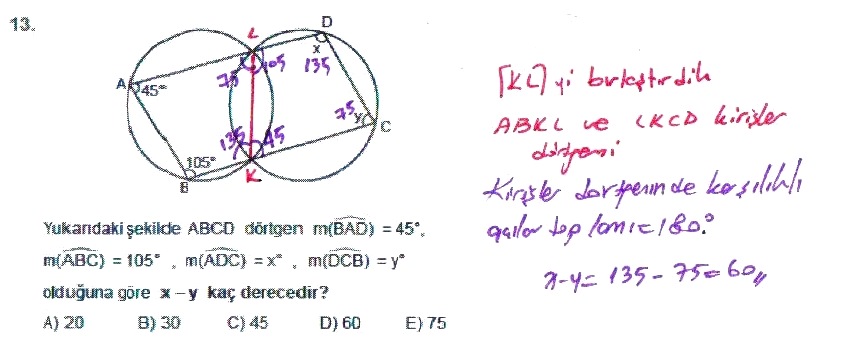 13.
D
L
x
75 105 135
A 45°
75 y C
135 45
105°
B K
[KL] yi birleştirdik
ABKL ve LKCD kirişler
dörtgeni
Kirişler dörtgeninde karşılıklı
açılar toplamı = 180°
x-y = 135 - 75 = 60,,
Yukarıdaki şekilde ABCD dörtgen m(BAD) = 45°,
m(ABC) = 105° , m(ADC) = x° , m(DCB) = y°
olduğuna göre x – y kaç derecedir?
A) 20 B) 30 C) 45 D) 60 E) 75